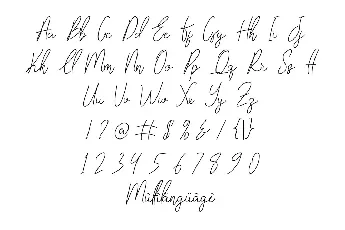 Aa Bb Cc Dd Ee Ff Gg Hh Ii Jj
Kk Ll Mm Nn Oo Pp Qq Rr Ss Tt
Uu Vv Ww Xx Yy Zz
! ? @ # $ % & / { \ }
1 2 3 4 5 6 7 8 9 0
Múltilingüãgé